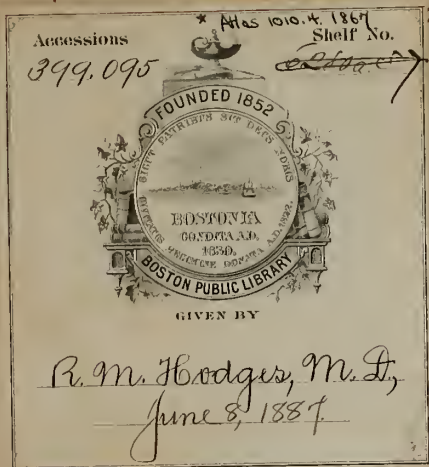 * Atlas 1010.4. 1867
Accessions
Shelf No.
399.095
FOUNDED 1852
SICUT PATRIBUS SIT DEUS NOBIS
BOSTONIA
CONDITA A.D.
1630.
CIVITATIS REGIMINE DONATA A.D. 1822.
BOSTON PUBLIC LIBRARY
GIVEN BY
R. M. Hodges, M. D.,
June 8, 1887.